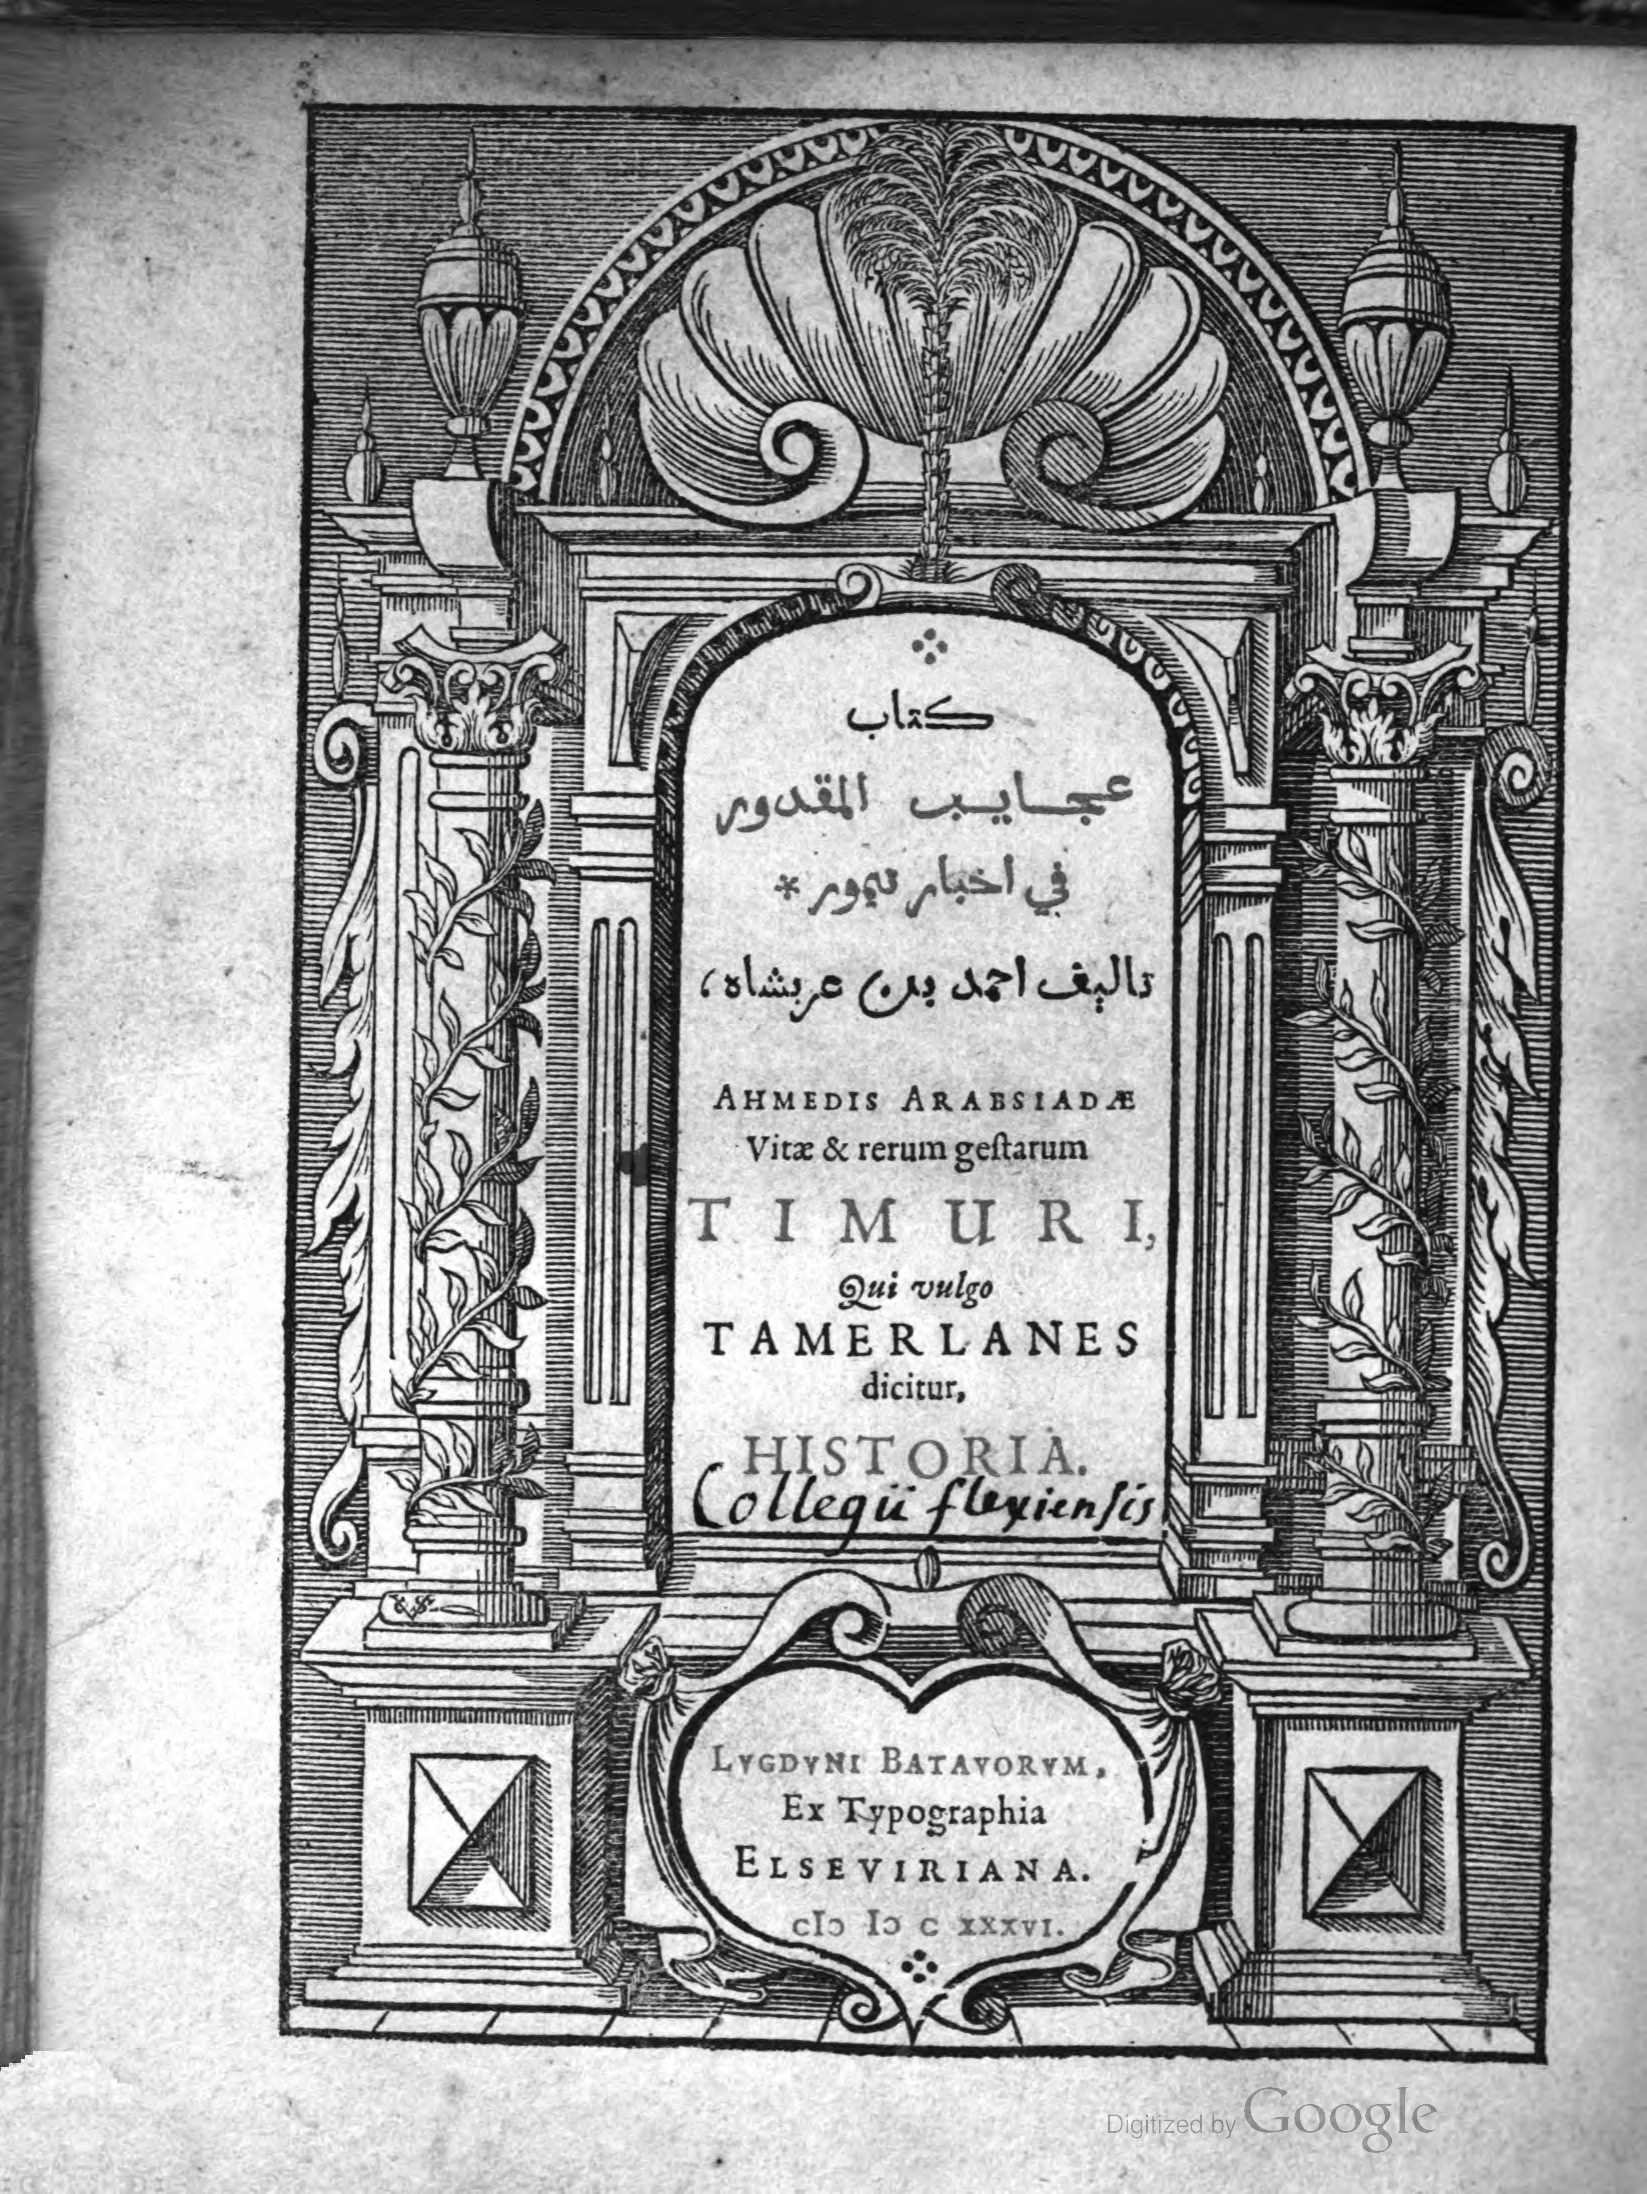 كتاب
عجايب المقدور
في اخبار تيمور *
تاليف احمد بن عربشاه،
AHMEDIS ARABSIADÆ
Vitæ & rerum geſtarum
TIMURI,
Qui vulgo
TAMERLANES
dicitur,
HISTORIA.
Collegii flexiensis
LVGDVNI BATAVORVM,
Ex Typographia
ELSEVIRIANA.
cIↄ Iↄ c xxxvi.
Digitized by Google